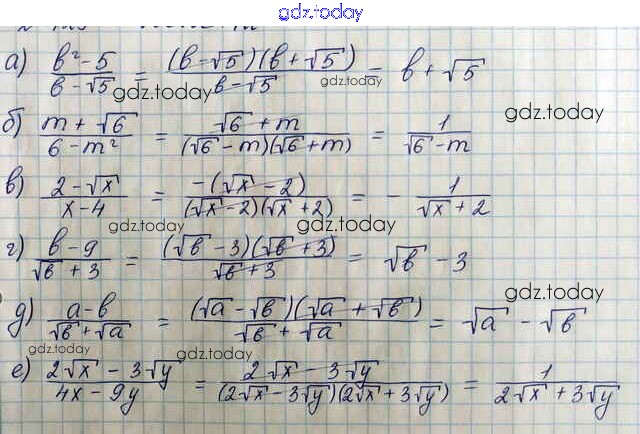 gdz.today
а) (в² - 5)/(в - √5) = ((в - √5)(в + √5))/(в - √5) = в + √5
gdz.today
gdz.today
б) (m + √6)/(6 - m²) = (√6 + m)/((√6 - m)(√6 + m)) = 1/(√6 - m)
в) (2 - √x)/(x - 4) = (-(√x - 2))/((√x - 2)(√x + 2)) = - 1/(√x + 2)
gdz.today
gdz.today
г) (в - 9)/(√в + 3) = ((√в - 3)(√в + 3))/(√в + 3) = √в - 3
gdz.today
д) (а - в)/(√в + √а) = ((√а - √в)(√а + √в))/(√в + √а) = √а - √в
gdz.today
gdz.today
е) (2√x - 3√y)/(4x - 9y) = (2√x - 3√y)/((2√x - 3√y)(2√x + 3√y)) = 1/(2√x + 3√y)